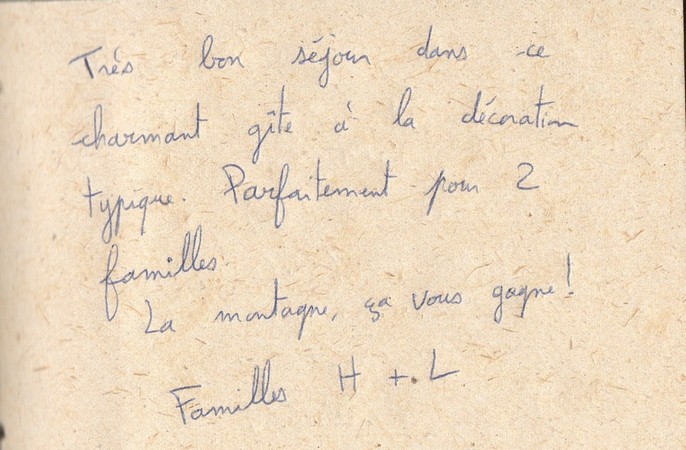 Très bon séjour dans ce
charmant gîte à la décoration
typique. Parfaitement pour 2
familles.
La montagne, ça vous gagne!
Familles H + L